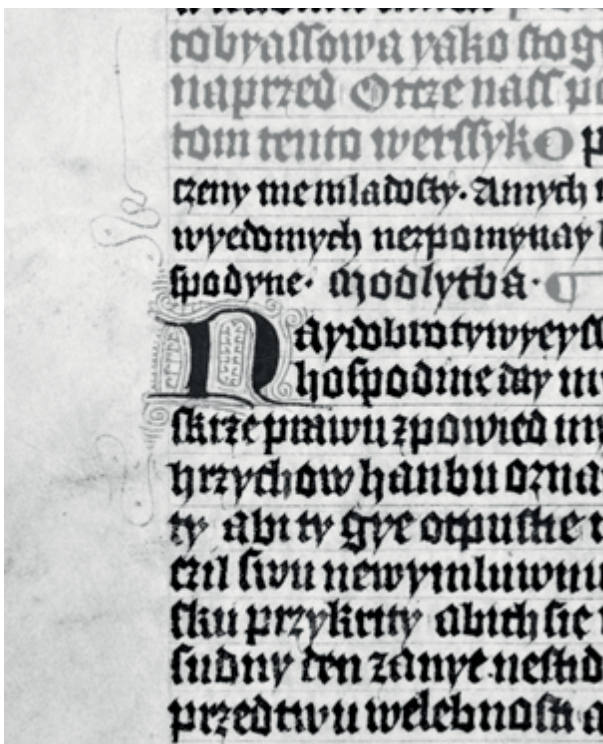 tobyassowa yako sto g
naprzed Otcze nass po
tom tento werssyk O p
czeny me mladosty. Amych n
wyedomych nezpomynay h
spodyne. Modlytba. ¶
Naydobrotywyeyss
hospodine day my
skrze prawu zpowied my
hrzychow hanbu ozna
ty aby ty gye otpustie
czil swu newymluwnu
sku przykrity abich sie
sudny den zanye nestid
przed twu welebnosti a